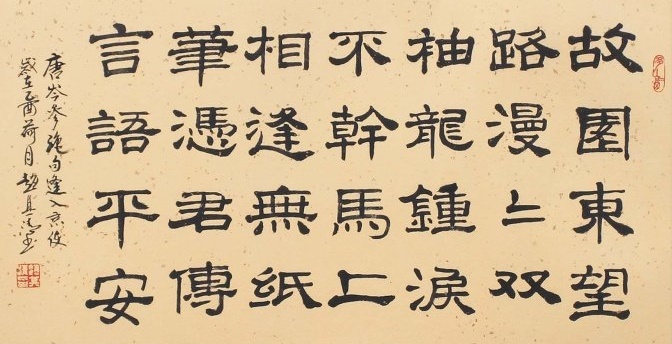 故園東望
路漫〻双
袖龍鍾淚
不幹馬上
相逢無紙
筆憑君傳
言語平安
唐岑參絶句逢入京使
歲在乙酉荷月趙